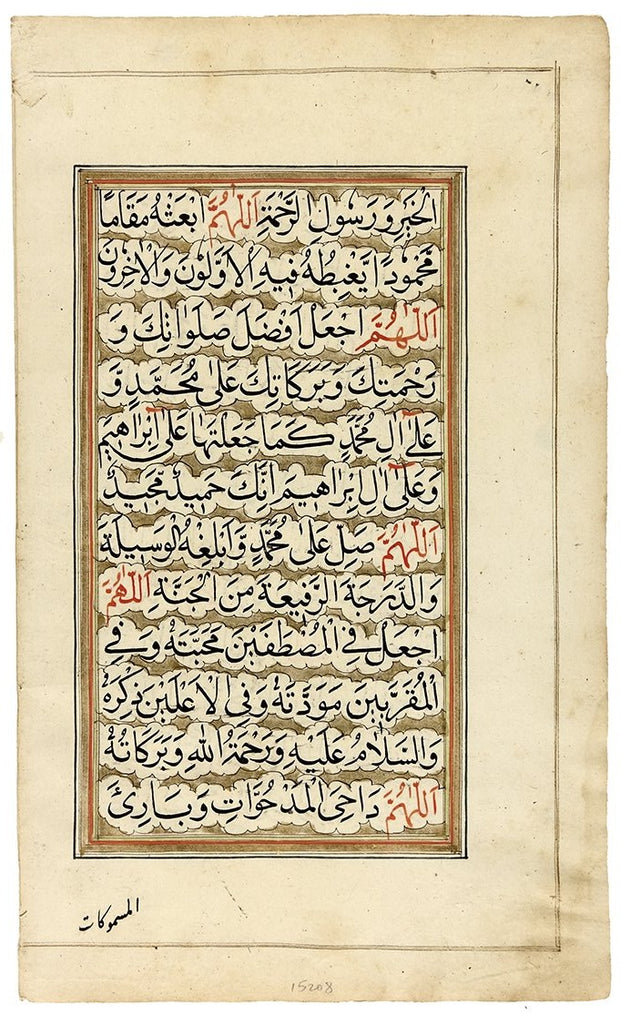 الْخَيْرِ وَرَسُولِ الرَّحْمَةِ اَللّٰهُمَّ ابْعَثْهُ مَقَامًا
مَحْمُودًا يَغْبِطُهُ فِيهِ الْاَوَّلُونَ وَالْاٰخِرُونَ
اَللّٰهُمَّ اجْعَلْ اَفْضَلَ صَلَوَاتِكَ وَ
رَحْمَتِكَ وَبَرَكَاتِكَ عَلٰى مُحَمَّدٍ وَّ
عَلٰٓى اٰلِ مُحَمَّدٍ كَمَا جَعَلْتَهَا عَلٰٓى اِبْرَاهِيمَ
وَعَلٰٓى اٰلِ اِبْرَاهِيمَ اِنَّكَ حَمِيدٌ مَّجِيدٌ
اَللّٰهُمَّ صَلِّ عَلٰى مُحَمَّدٍ وَّاَبْلِغْهُ الْوَسِيلَةَ
وَالدَّرَجَةَ الرَّفِيعَةَ مِنَ الْجَنَّةِ اَللّٰهُمَّ
اجْعَلْ فِي الْمُصْطَفَيْنَ مَحَبَّتَهُ وَفِي
الْمُقَرَّبِينَ مَوَدَّتَهُ وَفِي الْاَعْلَيْنَ ذِكْرَهُ
وَالسَّلَامُ عَلَيْهِ وَرَحْمَةُ اللهِ وَبَرَكَاتُهُ
اَللّٰهُمَّ دَاحِيَ الْمَدْحُوَّاتِ وَبَارِئَ
المسموكات
15208